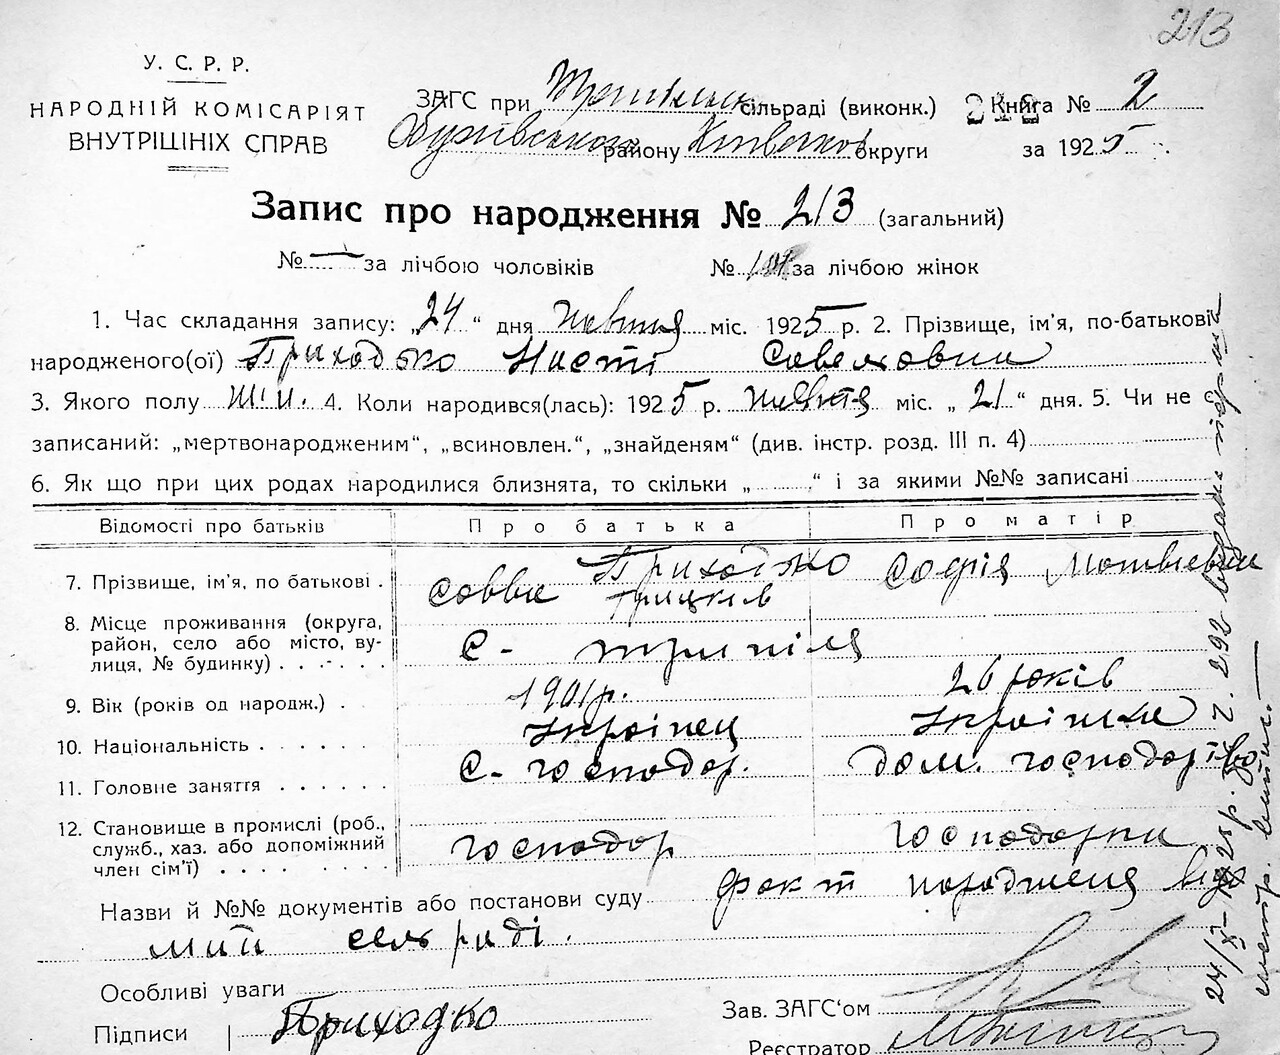 213
У. С. Р. Р.
НАРОДНІЙ КОМІСАРІЯТ
ВНУТРІШНІХ СПРАВ
ЗАГС при сільраді (виконк.) Книга № 2
Обухівського району Київської округи за 1925
Запис про народження № 213 (загальний)
№ — за лічбою чоловіків № за лічбою жінок
1. Час складання запису: „24“ дня Жовтня міс. 1925 р. 2. Прізвище, ім’я, по-батькові
народженого(ої) Приходько Насті Савеловни
3. Якого полу 4. Коли народився(лась): 1925 р. жовтня міс. „21“ дня. 5. Чи не є
записаний: „мертвонародженим“, „всиновлен.“, „знайденям“ (див. інстр. розд. III п. 4)
6. Як що при цих родах народилися близнята, то скільки „ “ і за якими №№ записані
Відомості про батьків Про батька Про матір
7. Прізвище, ім’я, по батькові . Приходжко Софія Матвієвни
Савви Грицків
8. Місце проживання (округа,
район, село або місто, ву-
лиця, № будинку) . . . . . с- трипіля
9. Вік (років од народж.) . 1901р. 26 років
10. Національність . . . . . . Украінец Украінка
11. Головне заняття . . . . . . с- господар. дом. господарство
12. Становище в промислі (роб.,
служб., хаз. або допоміжний
член сім’ї) . . . . . . . . господар господарка
Назви й №№ документів або постанови суду факт нароdженя відо
мий сельраді.
Особливі уваги
Підписи Приходко Зав. ЗАГС‘ом
Реєстратор